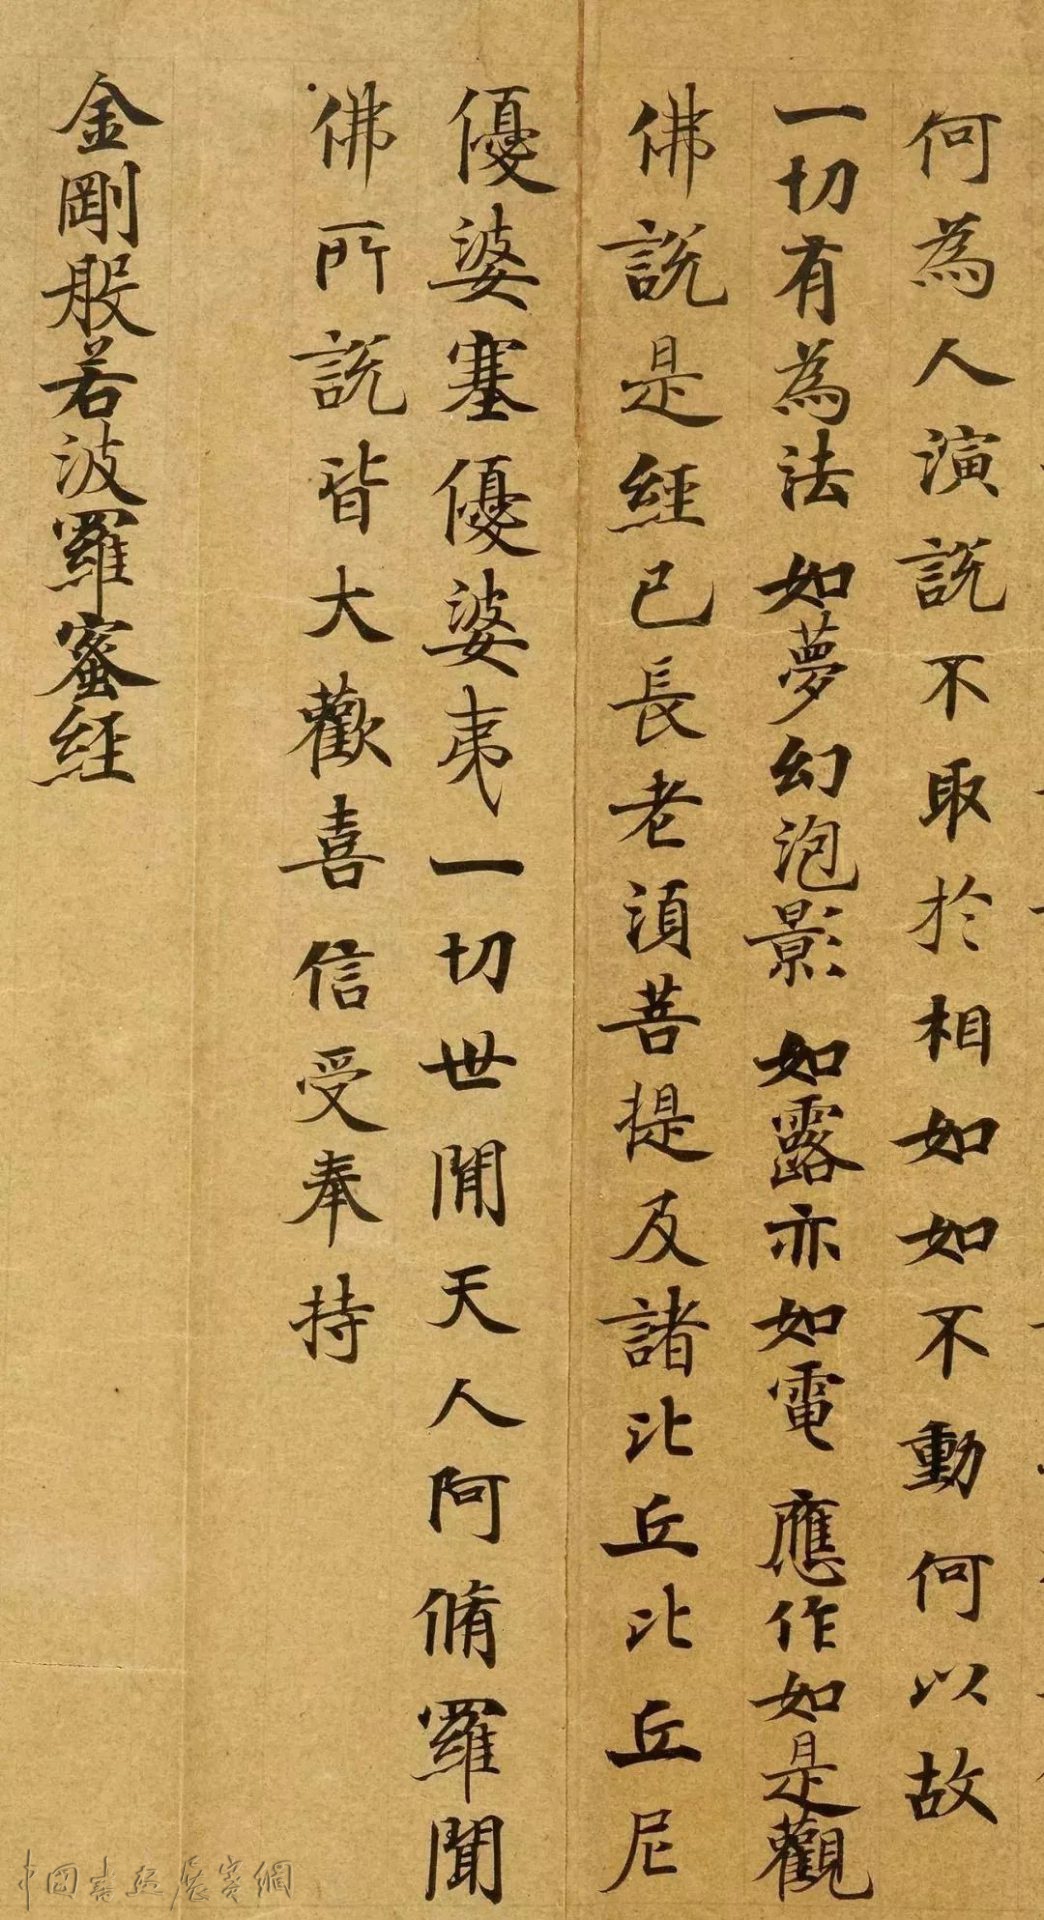 何為人演說不取於相如如不動何以故
一切有為法如夢幻泡影如露亦如電應作如是觀
佛說是經已長老須菩提及諸比丘比丘尼
優婆塞優婆夷一切世間天人阿脩羅聞
佛所說皆大歡喜信受奉持
金剛般若波羅蜜經
中国书法展赛網